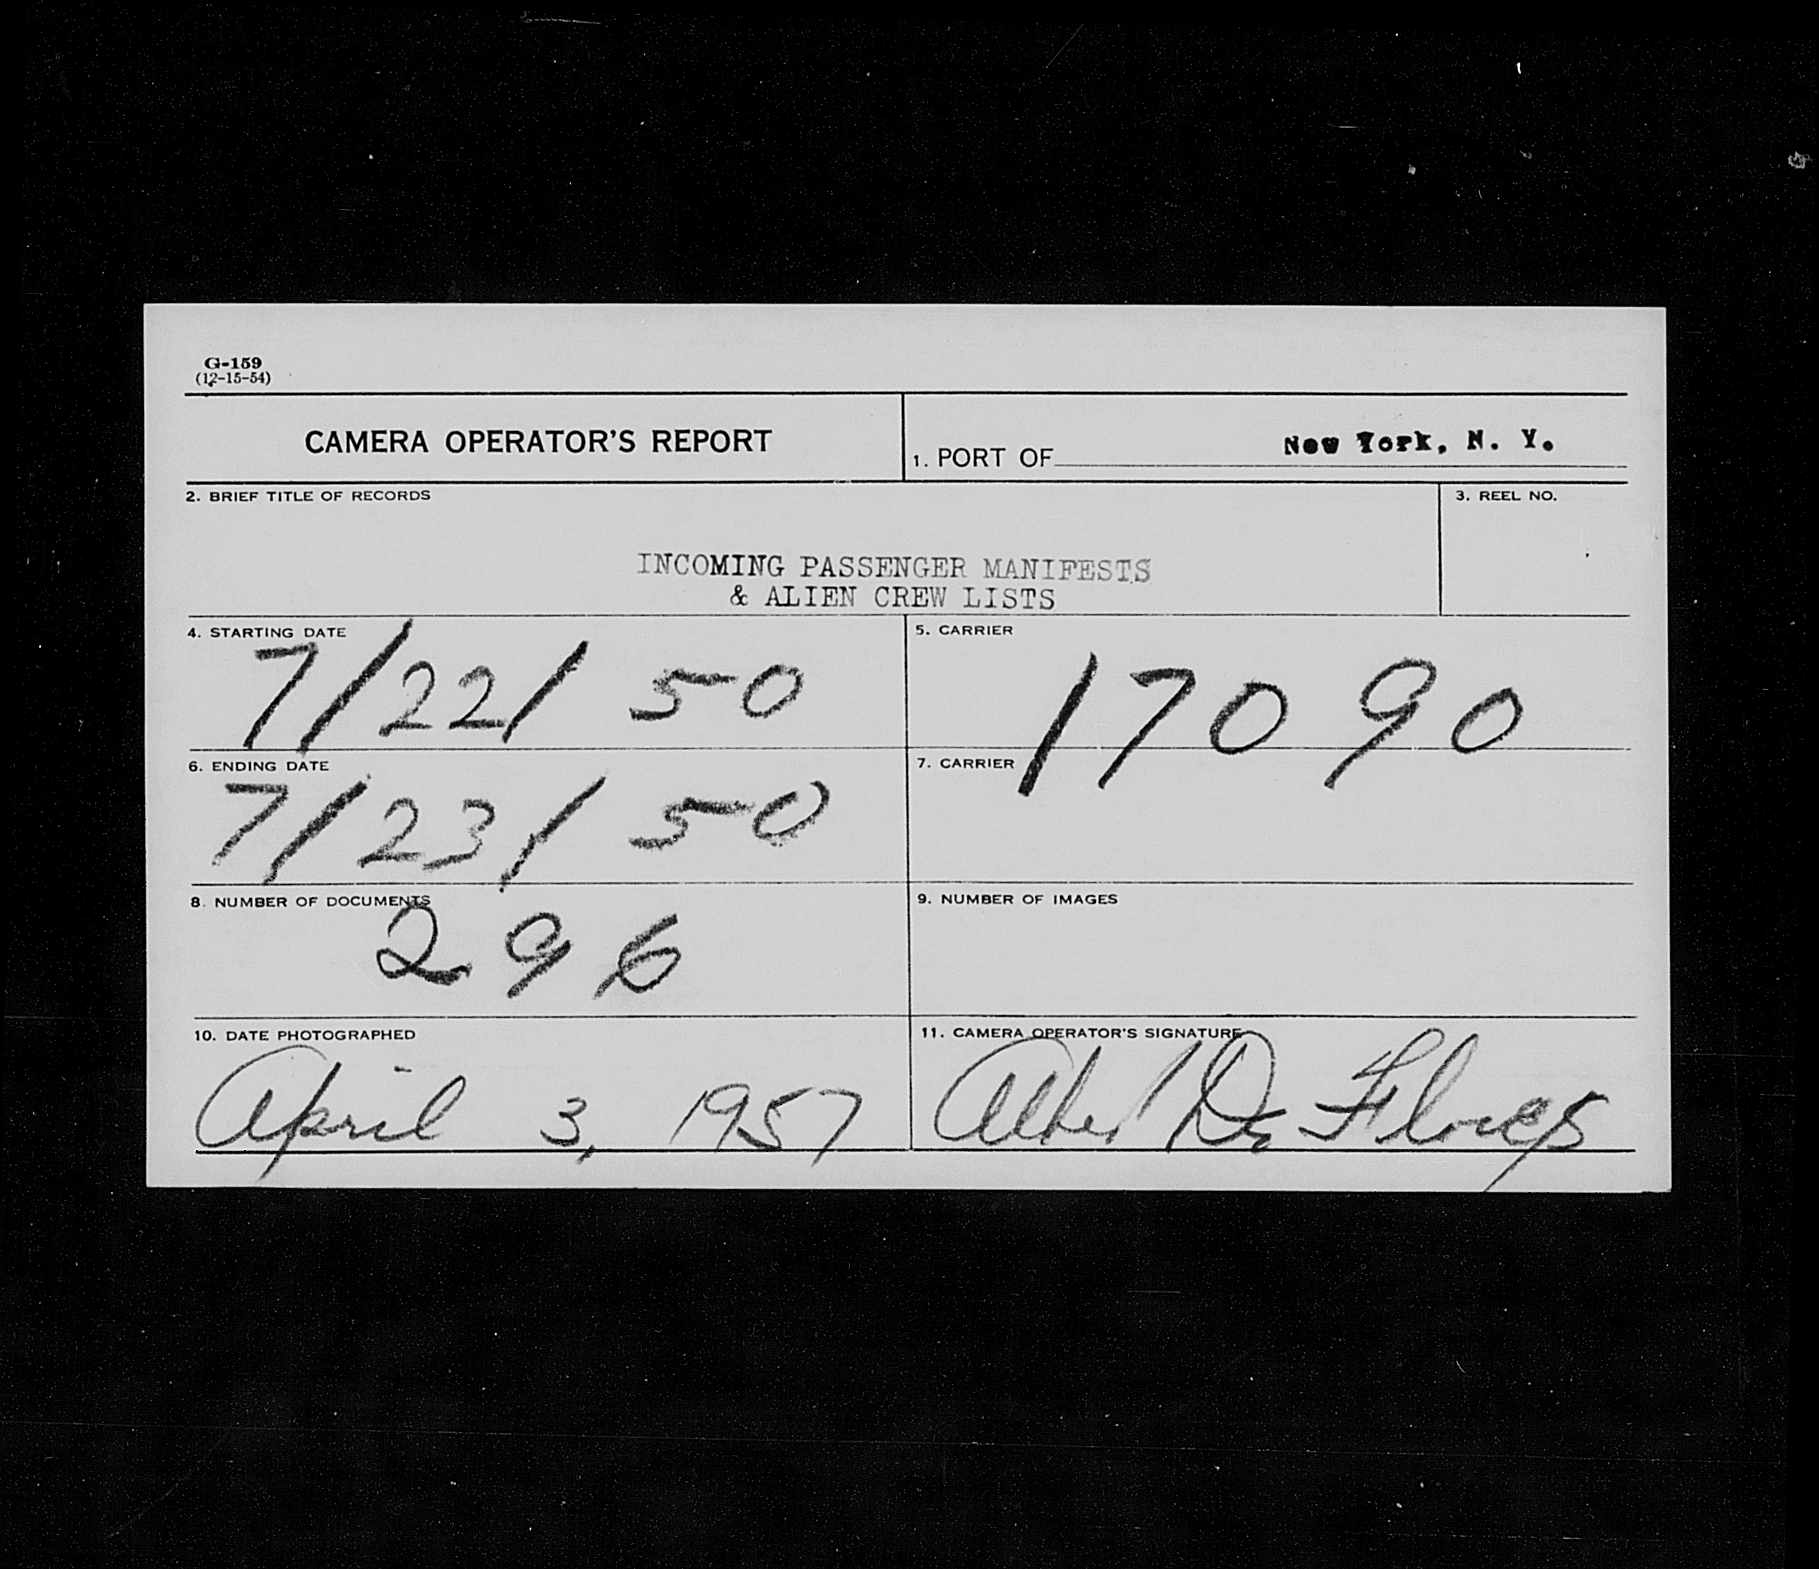 G-159
(12-15-54)
CAMERA OPERATOR'S REPORT
1. PORT OF New York, N. Y.
2. BRIEF TITLE OF RECORDS
3. REEL NO.
INCOMING PASSENGER MANIFESTS
& ALIEN CREW LISTS
4. STARTING DATE
7/22/50
5. CARRIER
17090
6. ENDING DATE
7/23/50
7. CARRIER
8. NUMBER OF DOCUMENTS
296
9. NUMBER OF IMAGES
10. DATE PHOTOGRAPHED
April 3, 1957
11. CAMERA OPERATOR'S SIGNATURE